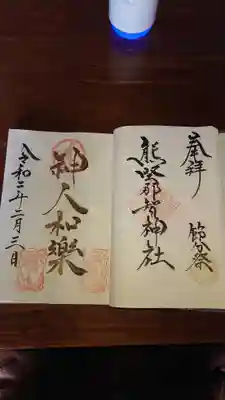 奉拝
節分祭
熊野那智神社
神人和楽
令和二年二月三日